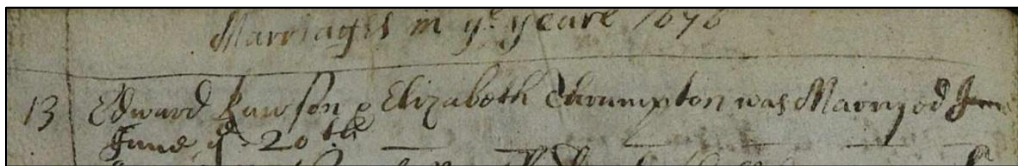 Marriages in ye yeare 1676
13 Edward Rawson & Elizabeth Thrumpton was Marryed June
June ye 20th